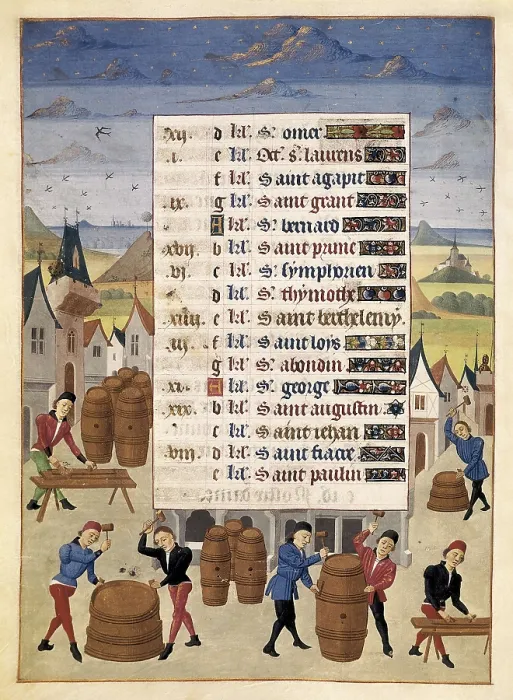 xii. d kl'. St omer
.i. e kl'. Oct. s. laurens
f kl'. Saint agapit
.ix. g kl'. Saint grant
A kl'. St bernard
.xvii. b kl'. Saint prime
.vi. c kl'. St symphorien
d kl'. St thymothe
.xiiii. e kl'. Saint berthelemy.
.iii. f kl'. Saint loys
g kl'. St abondin
.xi. A kl'. St george
.xix. b kl'. Saint augustin
c kl'. Saint iehan
.viii. d kl'. Saint fiacre
e kl'. Saint paulin